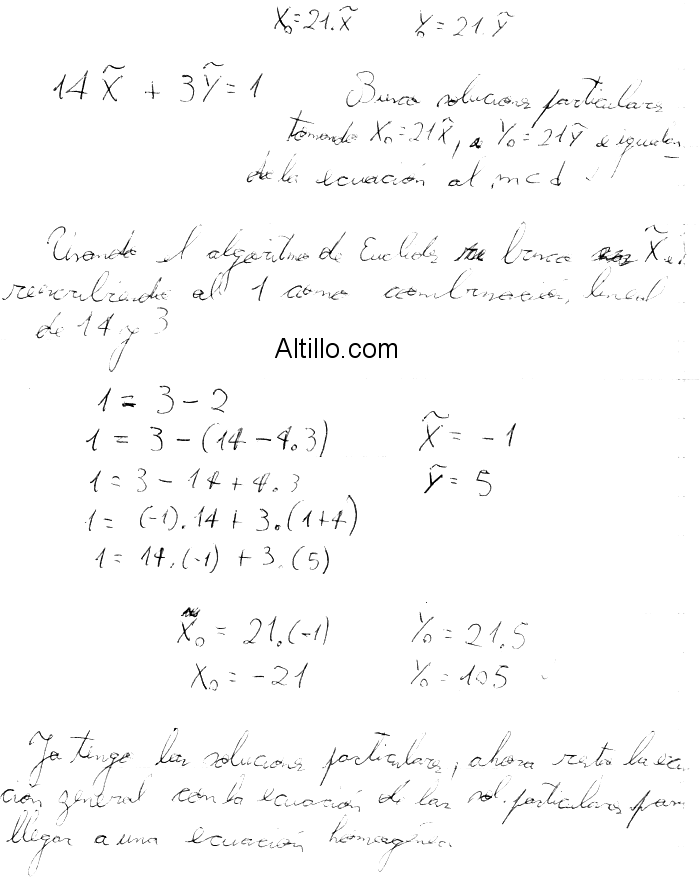 X₀=21.X̃ Y₀=21.Ỹ
14X̃ + 3Ỹ=1 Busco soluciones particulares
tomando X₀=21X̃, e Y₀=21Ỹ e igualan_
do la ecuación al mcd
Usando el algoritmo de Euclides busco X̃ e
reescribiendo al 1 como combinación lineal
de 14 y 3
Altillo.com
1 = 3-2
1 = 3-(14-4.3) X̃ = -1
1 = 3-14+4.3 Ỹ = 5
1 = (-1).14 + 3.(1+4)
1 = 14.(-1) + 3.(5)
X₀ = 21.(-1) Y₀ = 21.5
X₀ = -21 Y₀ = 105
Ya tengo las soluciones particulares, ahora resto la ecua
ción general con la ecuación de las sol. particulares para
llegar a una ecuación homogénea